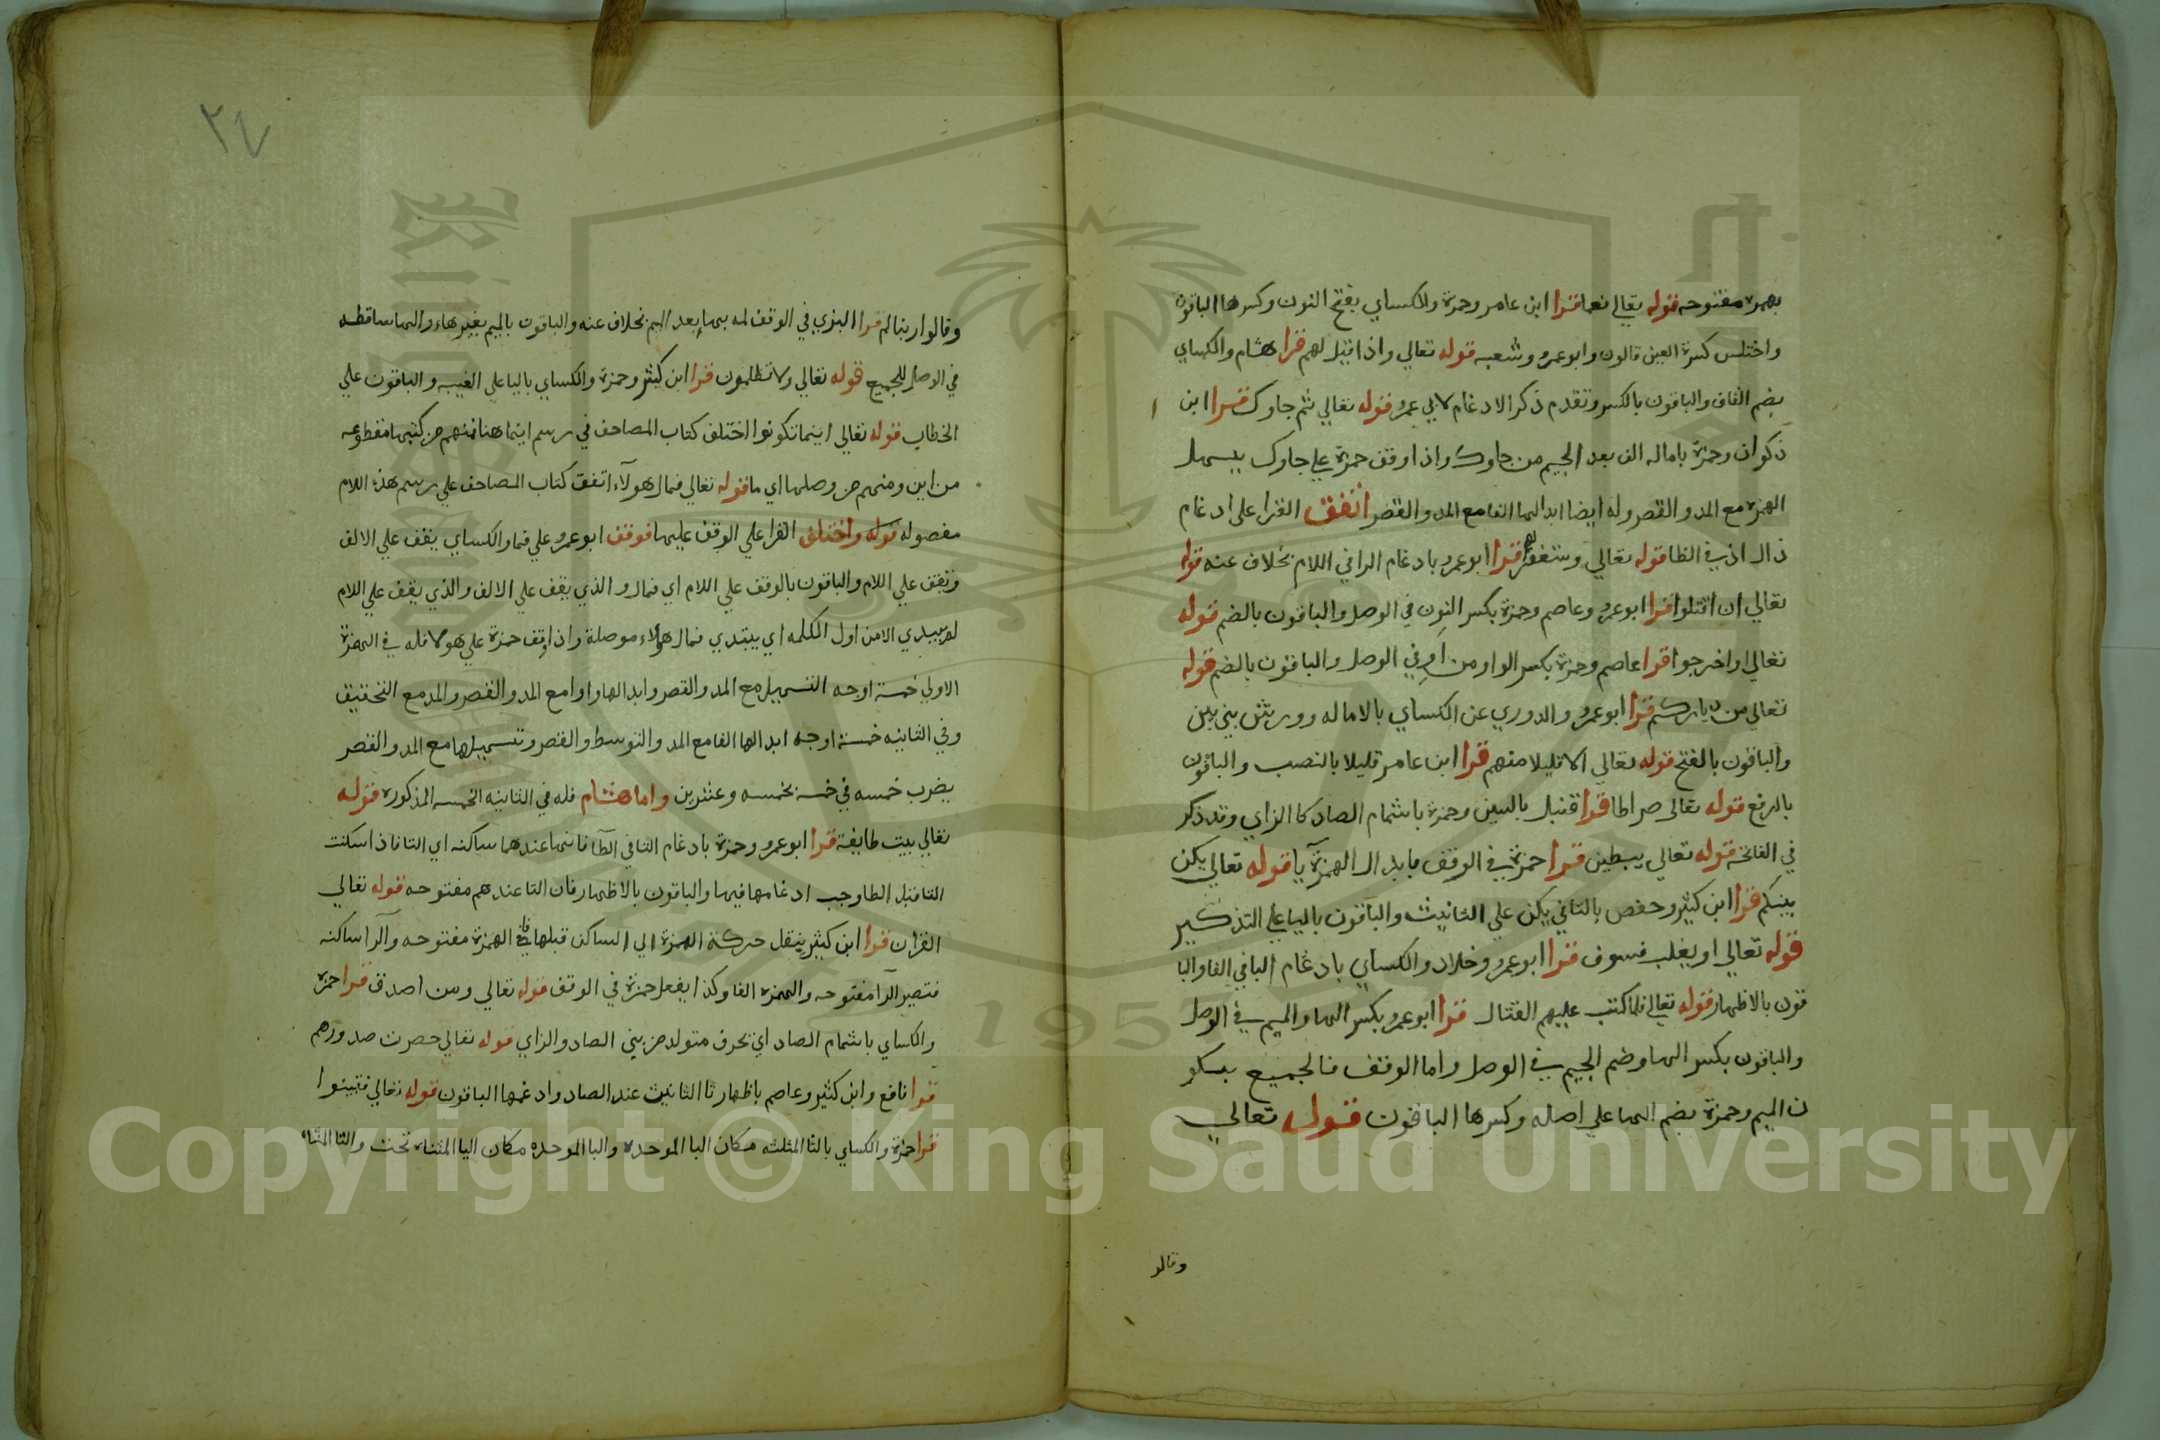 بهمزة مفتوحه قوله تعالي نعما قرا ابن عامر وحمزة والكساي بفتح النون وكسرها الباقون
واختلس كسرة العين قالون وابوعمرو وشعبه قوله تعالي واذا قيل لهم قرا هشام والكساي
بضم القاف والباقون بالكسر وتقدم ذكر الادغام لابي عمرو قوله تعالي ثم جاوك قرا ابن
ذكوان وحمزة باماله الف بعد الجيم من جاوك واذا وقف حمزة علي جاوك يسهل
الهمزه مع المد والقصر وله ايضا ابدالها الفا مع المد والقصر اتفق القرا علي ادغام
ذال اذ في الظا قوله تعالي وستغفر لهم قرا ابوعمرو بادغام الرا في اللام بخلاف عنه قوله
تعالي ان اقتلوا قرا ابوعمرو وعاصم وحمزة بكسر النون في الوصل والباقون بالضم قوله
تعالي او اخرجوا قرا عاصم وحمزة بكسر الواو من او في الوصل والباقون بالضم قوله
تعالي من دياركم قرا ابوعمرو والدوري عن الكساي بالاماله وورش بين بين
والباقون بالفتح قوله تعالي الا قليلا منهم قرا ابن عامر قليلا بالنصب والباقون
بالرفع قوله تعالي صراطا قرا قنبل بالسين وحمزة باشمام الصاد كا الزاي وقد ذكر
في الفاتحه قوله تعالي ليبطين قرا حمزة في الوقف بابدال الهمزة يا قوله تعالي يكن
بينكم قرا ابن كثير وحفص بالتا في يكن علي التانيث والباقون باليا علي التذكير
قوله تعالي او يغلب فسوف قرا ابوعمرو وخلاد والكساي بادغام البا في الفا والبا
قون بالاظهار قوله تعالي فلما كتب عليهم القتال قرا ابوعمرو بكسر الها والميم في الوصل
والباقون بكسر الها وضم الجيم في الوصل واما الوقف فالجميع بسكو
ن الميم وحمزة بضم الها علي اصله وكسرها الباقون قوله تعالي
وقالو
٣٤
وقالوا ربنا لم قرا البزي في الوقف لمه بها بعد الميم بخلاف عنه والباقون بالميم بغير هاء والها ساقطه
في الوصل للجميع قوله تعالي ولا تظلمون قرا ابن كثير وحمزة والكساي باليا علي الغيبه والباقون علي
الخطاب قوله تعالي اينما تكونوا اختلف كتاب المصاحف في رسم اينما هنا فمنهم من كتبها مقطوعه
من اين ومنهم من وصلها اي ما قوله تعالي فمال هولآء اتفق كتاب المصاحف علي رسم هذه اللام
مفصوله قوله واختلف القرا علي الوقف عليها فوقف ابوعمرو علي فما والكساي يقف علي الالف
ويقف علي اللام والباقون بالوقف علي اللام اي فمال والذي يقف علي الالف والذي يقف علي اللام
لم يبتدي الا من اول الكلمه اي يبتدي فمال هولاء موصلة واذا وقف حمزة علي هولا فله في الهمزة
الاولي خمسة اوجه التسهيل مع المد والقصر وابدالها واوا مع المد والقصر والمد مع التحقيق
وفي الثانيه خمسة اوجه ابدالها الفا مع المد والتوسط والقصر وتسهيلها مع المد والقصر
يضرب خمسه في خمسه بخمسه وعشرين واما هشام فله في الثانيه الخمسه المذكوره قوله
تعالي بيت طايفة قرا ابوعمرو وحمزة بادغام التا في الطآ فانها عندهما ساكنه اي التا فاذا سكنت
التا قبل الطا وجب ادغامها فيها والباقون بالاظهار فان التا عندهم مفتوحه قوله تعالي
القران قرا ابن كثير بنقل حركة الهمزة الي الساكن قبلها الهمزة مفتوحه والرا ساكنه
فتصير الرا مفتوحه والهمزه الفا وكذا يفعل حمزة في الوقف قوله تعالي ومن اصدق قرا حمزة
والكساي باشمام الصاد اي بحرف متولد من بين الصاد والزاي قوله تعالي حصرت صدورهم
قرا نافع وابن كثير وعاصم باظهار تا التانيث عند الصاد وادغمها الباقون قوله تعالي فتبينوا
قرا حمزة والكساي بالثا المثلثه مكان البا الموحده والبا الموحده مكان اليا المثناه تحت والتا المثناه
Copyright © King Saud University
1957